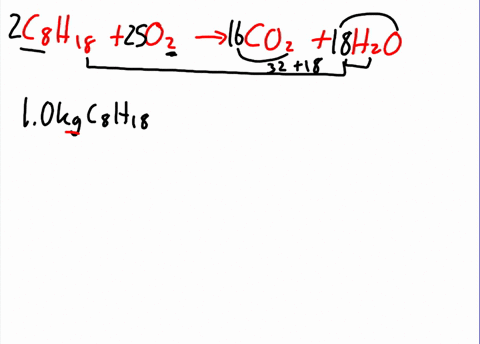 2C₈H₁₈ + 25O₂ → 16CO₂ + 18H₂O
32 + 18
1.0kg C₈H₁₈